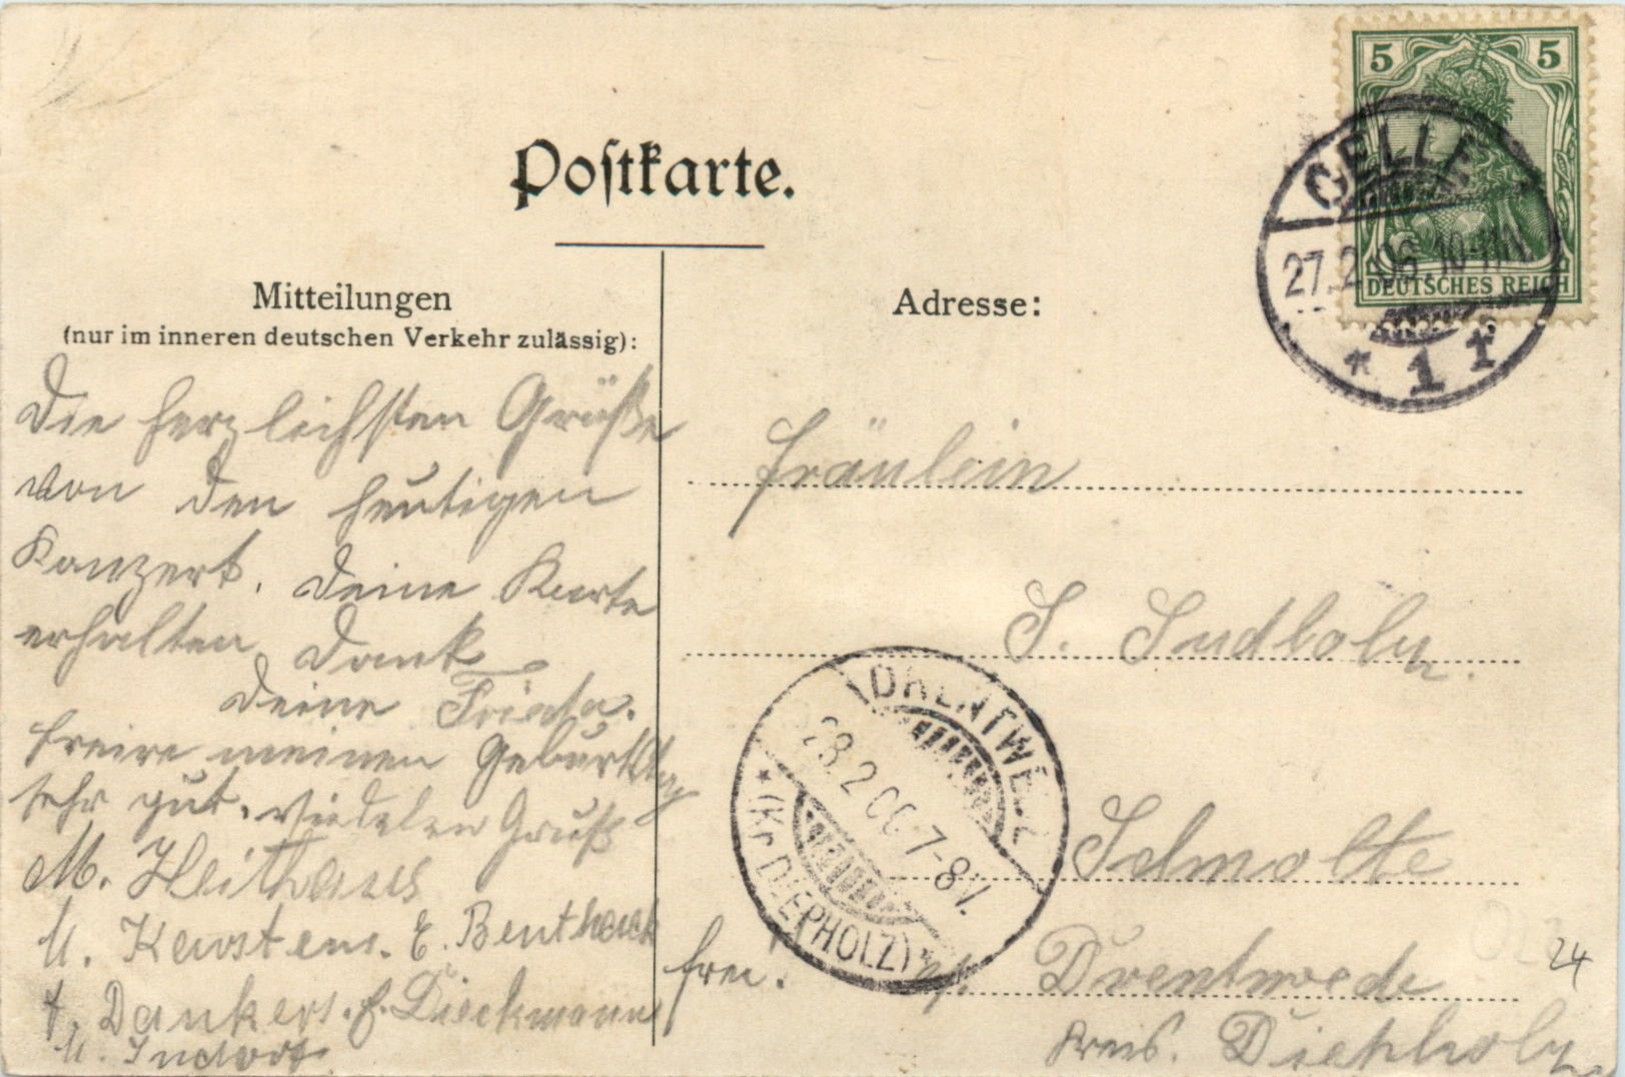 5 5
DEUTSCHES REICH
CELLE
27.2.06. 10-11V.
* 1 f
Postkarte.
Mitteilungen
(nur im inneren deutschen Verkehr zulässig):
Adresse:
Die herzlichsten Grüße
von den heutigen
Konzert. Deine Karte
erhalten, Dank
Deine Frieda.
Freire meinen Geburtstag
sehr gut. Gruß
M. Heithaus
M. Kerstens. E. Benthack
Dankers. F. Dieckmann
Fräulein
S. Sudholz.
Schmolte
frei. Drentwede
Kreis. Diepholz
DRENTWEDE
28.2.06 7-8V.
* (Kr. DIEPHOLZ) *
24